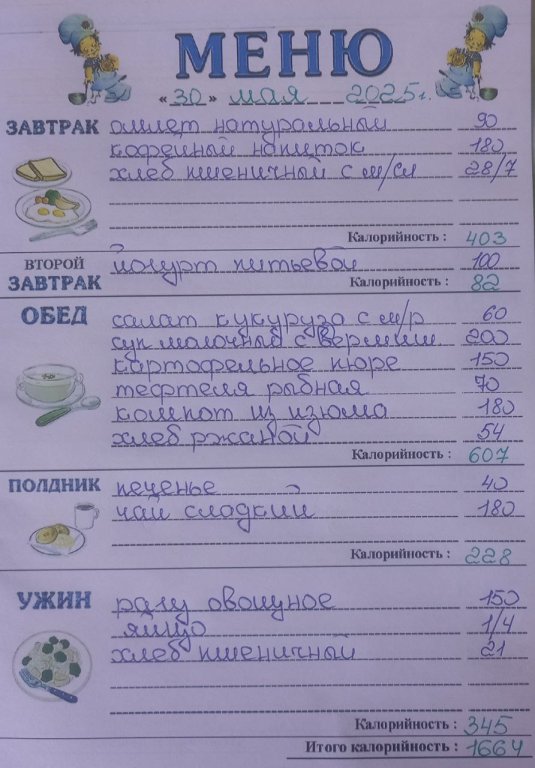 МЕНЮ
« 30 » мая 2025 г.
ЗАВТРАК омлет натуральный 90
кофейный напиток 180
хлеб пшеничный с м/сл 28/7
Калорийность : 403
ВТОРОЙ ЗАВТРАК йогурт питьевой 100
Калорийность : 82
ОБЕД салат кукуруза с м/р 60
суп молочный с вермиш 200
картофельное пюре 150
тефтеля рыбная 70
компот из изюма 180
хлеб ржаной 54
Калорийность : 607
ПОЛДНИК печенье 40
чай сладкий 180
Калорийность : 228
УЖИН рагу овощное 150
яйцо 1/4
хлеб пшеничный 21
Калорийность : 345
Итого калорийность : 1664